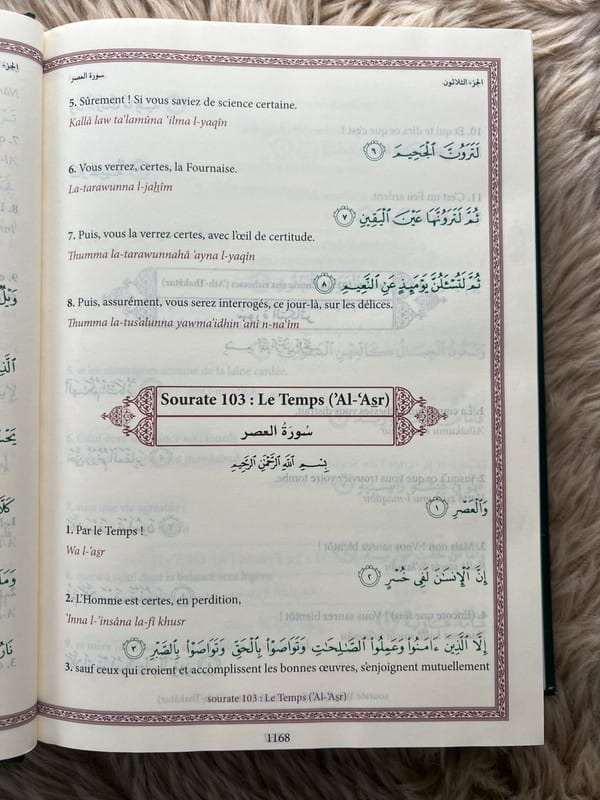 سورة العصر
الجزء الثلاثون
5. Sûrement ! Si vous saviez de science certaine.
Kallâ law ta'lamûna 'ilma l-yaqîn
لَتَرَوُنَّ ٱلْجَحِيمَ ٦
6. Vous verrez, certes, la Fournaise.
La-tarawunna l-jaẖîm
ثُمَّ لَتَرَوُنَّهَا عَيْنَ ٱلْيَقِينِ ٧
7. Puis, vous la verrez certes, avec l'œil de certitude.
Thumma la-tarawunnahâ 'ayna l-yaqîn
ثُمَّ لَتُسْـَٔلُنَّ يَوْمَئِذٍ عَنِ ٱلنَّعِيمِ ٨
8. Puis, assurément, vous serez interrogés, ce jour-là, sur les délices.
Thumma la-tus'alunna yawma'idhin 'ani n-na'îm
Sourate 103 : Le Temps (’Al-‘As̲r)
سُورَةُ العصر
بِسْمِ ٱللَّهِ ٱلرَّحْمَٰنِ ٱلرَّحِيمِ
وَٱلْعَصْرِ ١
1. Par le Temps !
Wa l-‘as̲r
إِنَّ ٱلْإِنسَٰنَ لَفِى خُسْرٍ ٢
2. L'Homme est certes, en perdition,
’Inna l-’insâna la-fî khusr
إِلَّا ٱلَّذِينَ ءَامَنُوا۟ وَعَمِلُوا۟ ٱلصَّٰلِحَٰتِ وَتَوَاصَوْا۟ بِٱلْحَقِّ وَتَوَاصَوْا۟ بِٱلصَّبْرِ ٣
3. sauf ceux qui croient et accomplissent les bonnes œuvres, s'enjoignent mutuellement
sourate 103 : Le Temps (’Al-‘As̲r)
1168